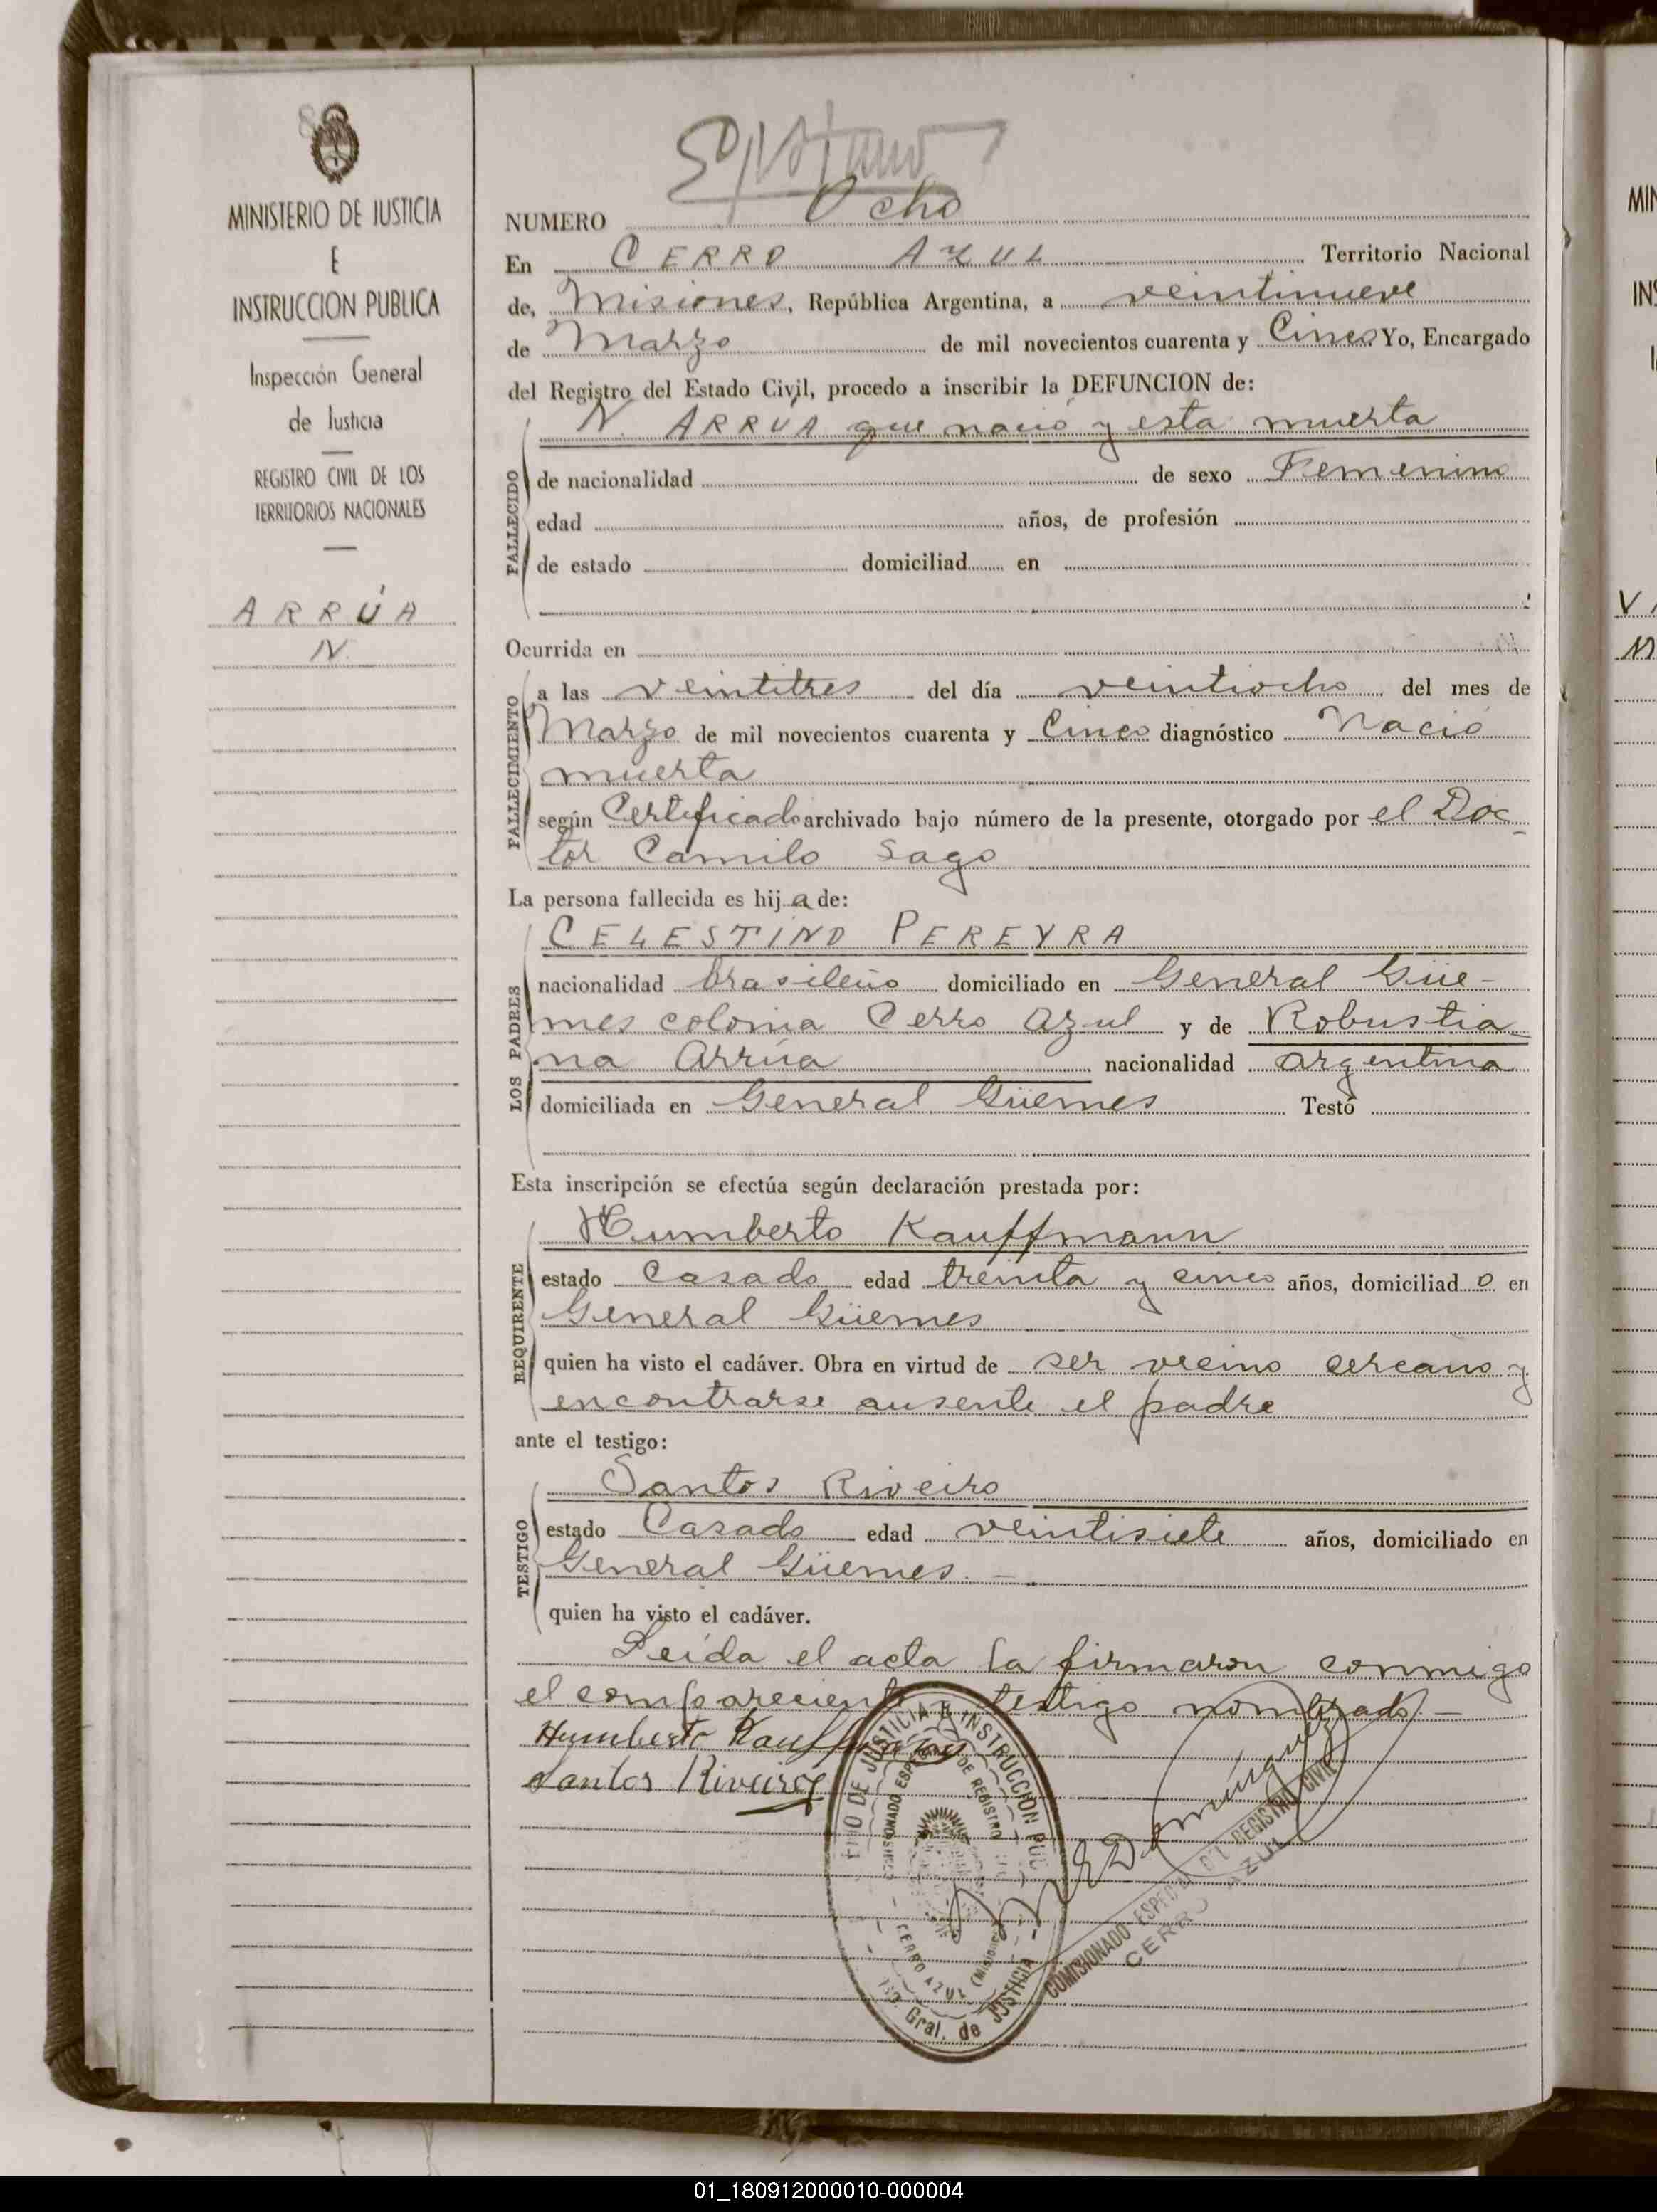 MINISTERIO DE JUSTICIA
E
INSTRUCCION PUBLICA
Inspección General
de Justicia
REGISTRO CIVIL DE LOS
TERRITORIOS NACIONALES
ARRÚA
N.
NUMERO Ocho
En CERRO AZUL Territorio Nacional
de, Misiones, República Argentina, a veintinueve
de Marzo de mil novecientos cuarenta y Cinco Yo, Encargado
del Registro del Estado Civil, procedo a inscribir la DEFUNCION de:
N. ARRÚA que nació y esta muerta
FALLECIDO
de nacionalidad de sexo Femenino
edad años, de profesión
de estado domiciliad en
Ocurrida en
FALLECIMIENTO
a las veintitres del día veintiocho del mes de
Marzo de mil novecientos cuarenta y Cinco diagnóstico Nació
muerta
según Certificado archivado bajo número de la presente, otorgado por el Doc-
tor Camilo Sago
La persona fallecida es hija de:
LOS PADRES
CELESTINO PEREYRA
nacionalidad brasileño domiciliado en General Güe-
mes colonia Cerro Azul y de Robustia
na Arrúa nacionalidad argentina
domiciliada en General Güemes Testó
Esta inscripción se efectúa según declaración prestada por:
REQUIRENTE
Humberto Kauffmann
estado Casado edad treinta y cinco años, domiciliado en
General Güemes
quien ha visto el cadáver. Obra en virtud de ser vecino cercano y
encontrarse ausente el padre
ante el testigo:
TESTIGO
Santos Riveiro
estado Casado edad veintisiete años, domiciliado en
General Güemes. -
quien ha visto el cadáver.
Leída el acta la firmaron conmigo
el compareciente y testigo nombrado. -
Humberto Kauffmann
Santos Riveiro
DE JUSTICIA E INSTRUCCION PUB
COMISIONADO ESPECIAL DE REGISTRO
CERRO AZUL (Misiones)
Gral. de JUSTICIA
E Domínguez
COMISIONADO ESPECIAL DEL REGISTRO CIVIL
CERRO AZUL
MIN
INS
V
N
01_180912000010-000004